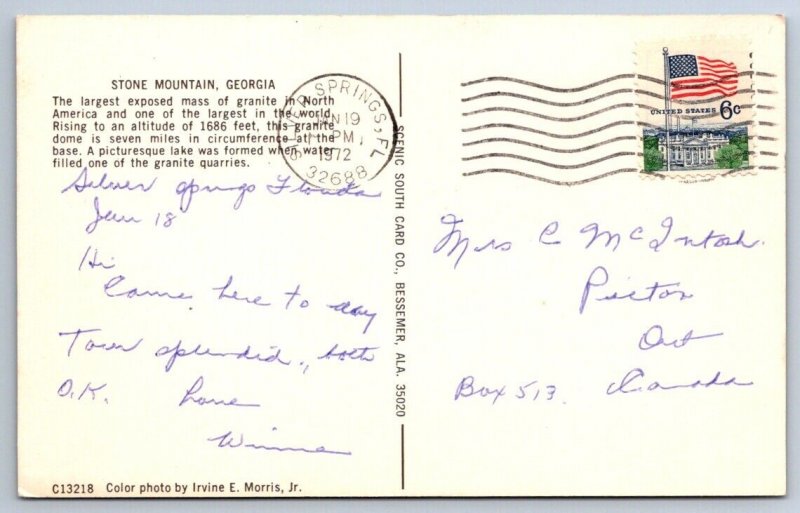 STONE MOUNTAIN, GEORGIA
The largest exposed mass of granite in North
America and one of the largest in the world.
Rising to an altitude of 1686 feet, this granite
dome is seven miles in circumference at the
base. A picturesque lake was formed when water
filled one of the granite quarries.
Silver Springs Florida
Jan 18
Hi
Came here to day
Town splendid., both
O.K. Love
Winnie
C13218 Color photo by Irvine E. Morris, Jr.
SCENIC SOUTH CARD CO., BESSEMER, ALA. 35020
SILVER SPRINGS, FL
JAN 19
PM
1972
32688
UNITED STATES 6c
Mrs C McIntosh.
Picton
Ont
Box 513. Canada